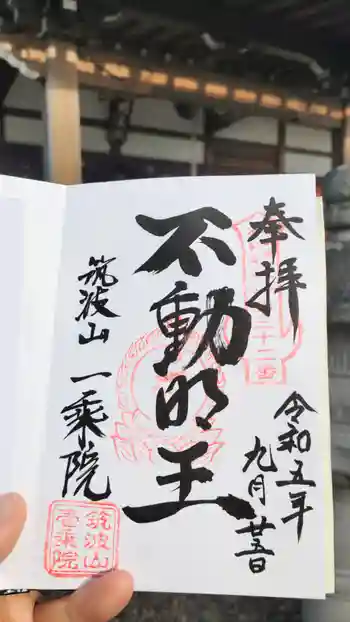 奉拝
令和五年
九月廿五日
不動明王
筑波山 一乗院
筑波山
壱乗院